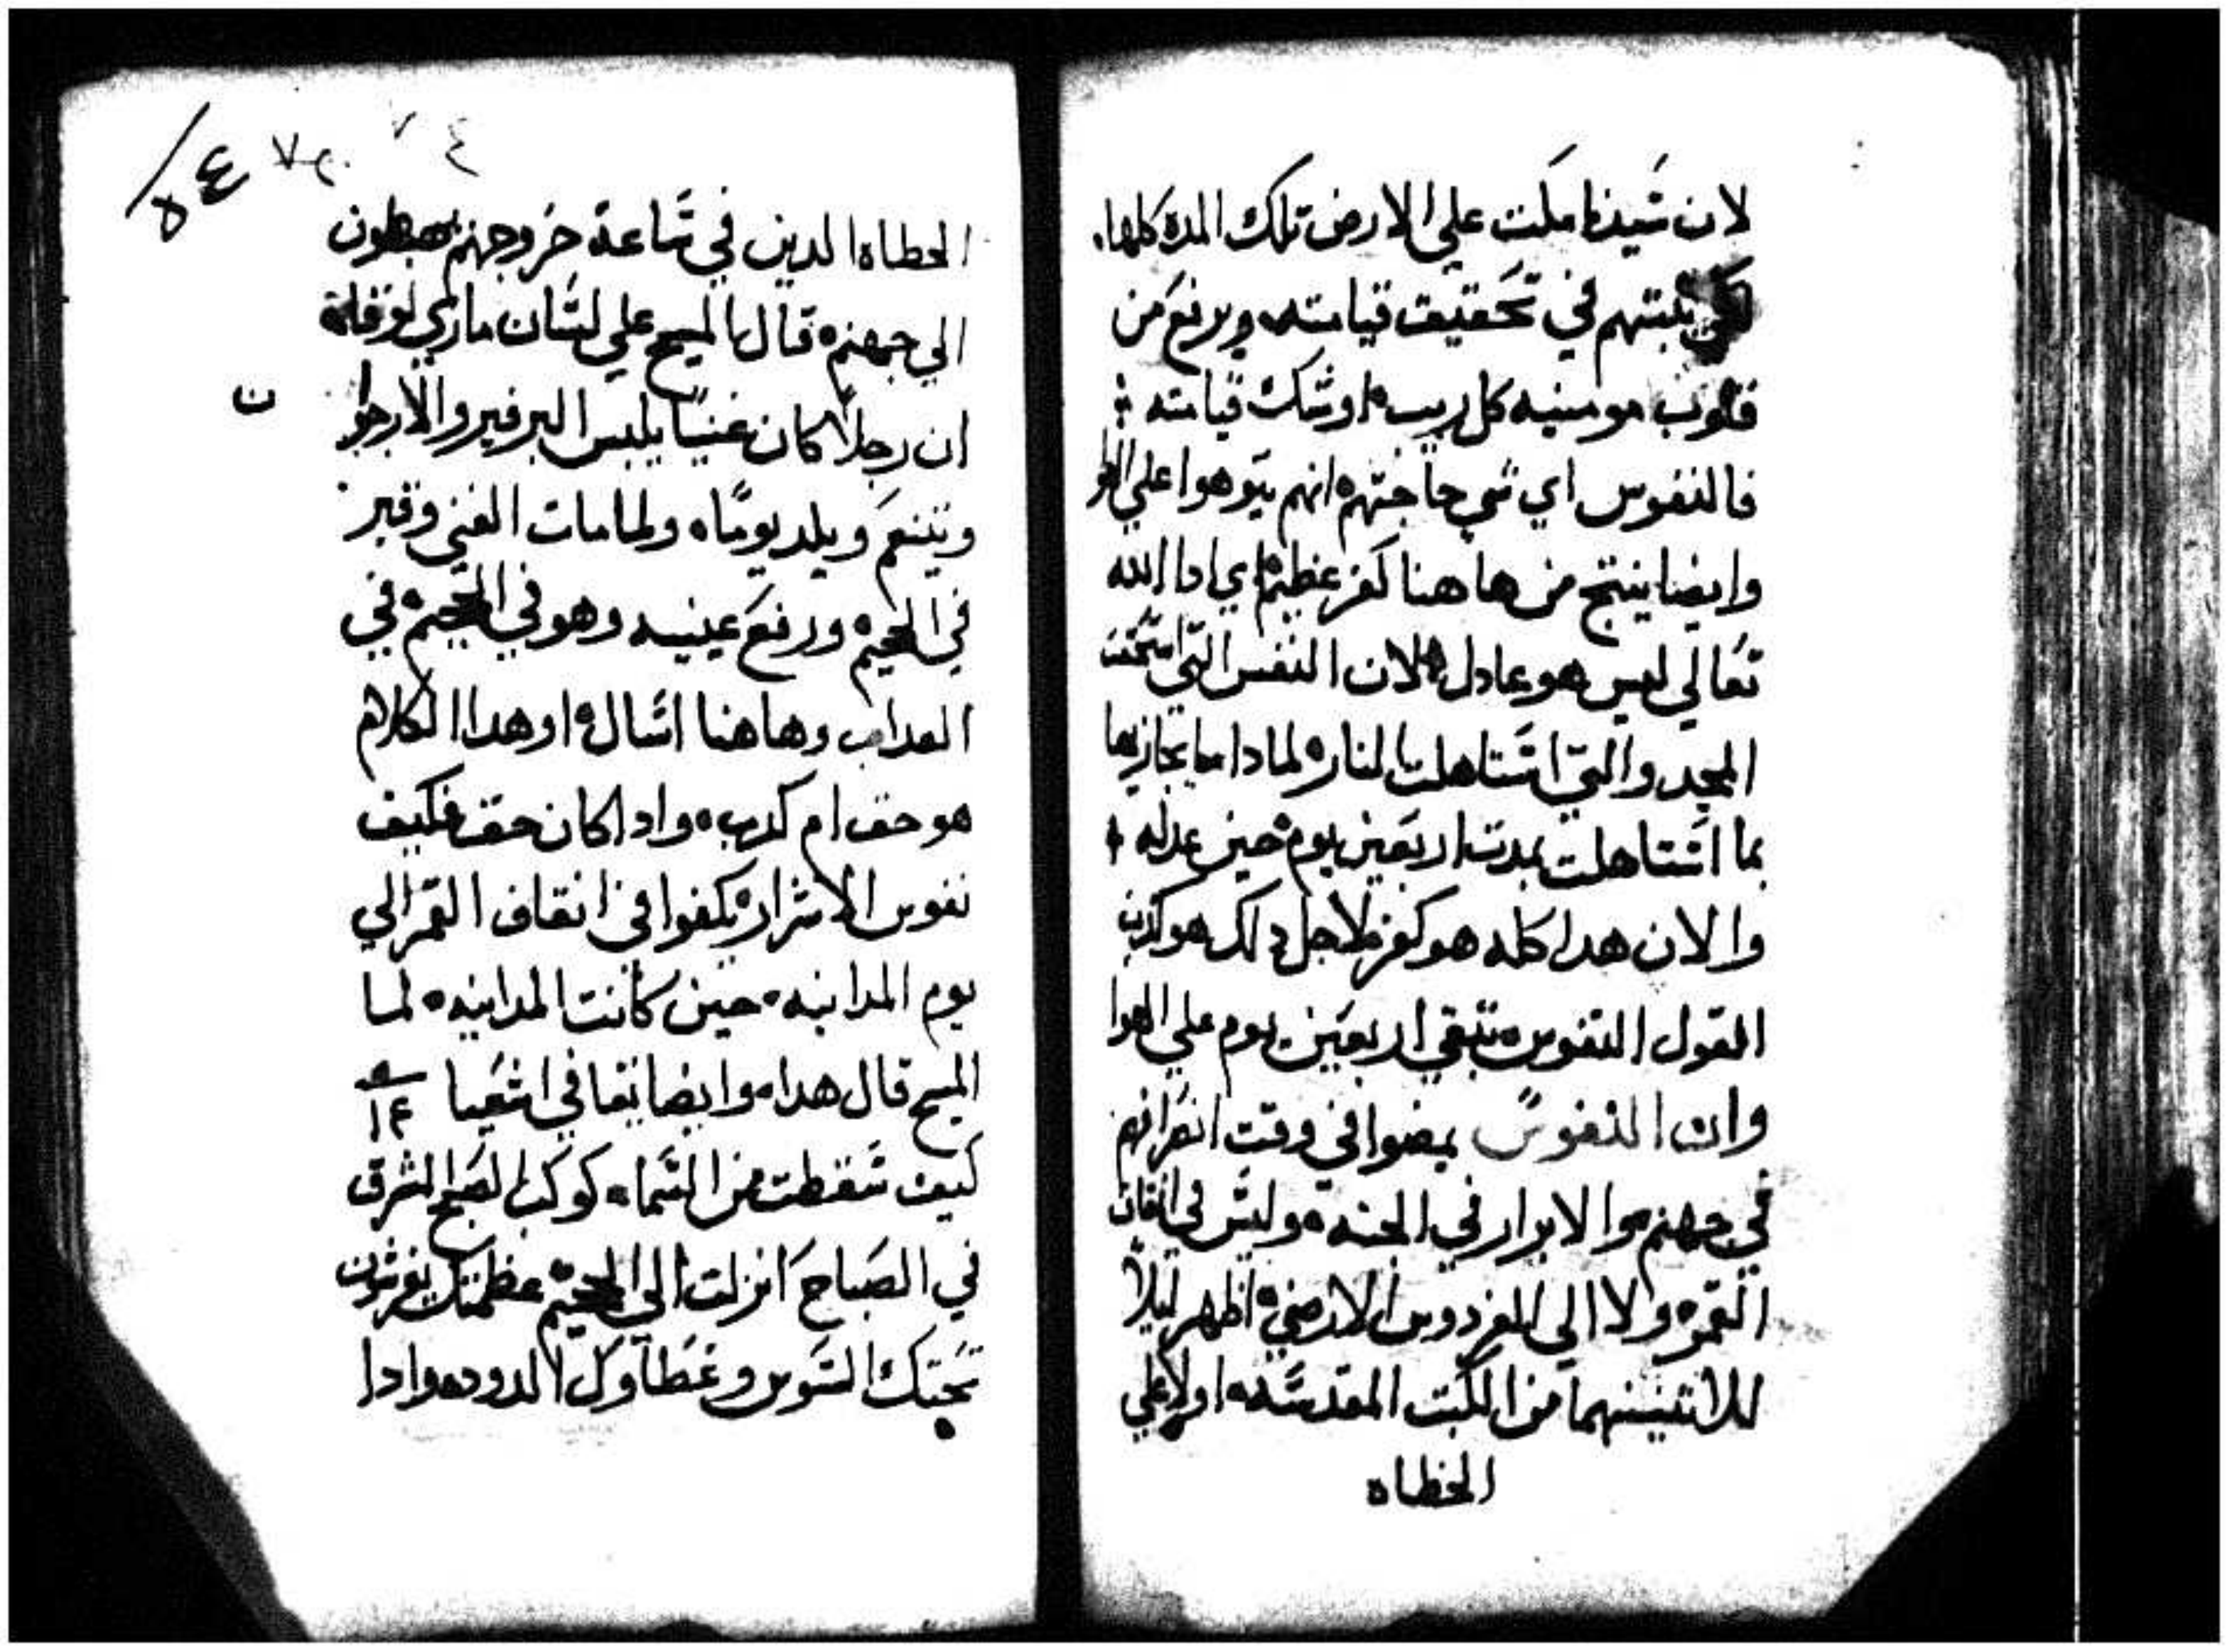 لان سيدنا مكت علي الارض تلك المدة كلها.
يثبتهم في تحقيق قيامته ويرفع من
قلوب مومنيه كل ريب او شك قيامته
فالنفوس اي شي حاجتهم انهم يتوهوا علي الهوا
وايضا ينتج من هاهنا كفر عظيم اي ادا الله
تعالي ليس هو عادل لان النفس التي استحقت
المجد والتي استاهلت النار لمادا ما يجازيها
بما استاهلت بمدت اربعين يوم حين عدله
والان هدا كله هو كفر فلاجل دلك هو كدب
القول النفوس تبقي اربعين يوم علي الهوا
وان النفوس يمضوا في وقت انفرادهم
في جهنم والابرار في الجنه وليس في انقاف
القمر ولا الي الفردوس الارضي اظهر ليلاً
للاتنينهما من الكتب المقدسه اولا علي
الخطاه
٥٤
٧٤
الخطاه الدين في ساعة خروجهم يهبطون
الي جهنم قال المسيح علي لسان ماري لوقا
ان رجلاً كان غنيا يلبس البرفير والارجوان
ويتنعم ويلد يومًا ولما مات الغني وقبر
في الجحيم ورفع عينيه وهو في الجحيم في
العداب وهاهنا اسال اوهدا الكلام
هو حق ام كدب وادا كان حق فكيف
نفوس الاشرار يكفوا في انقاف القمر الي
يوم المداينه حين كانت المداينه لما
المسيح قال هدا وايضا نقا في اشعيا ١٤
كيف سقطت من السما كوكب الصبح المشرق
في الصباح انزلت الي الجحيم عظمتك يفرشون
تحتك السوس وغطاوك الدود وادا